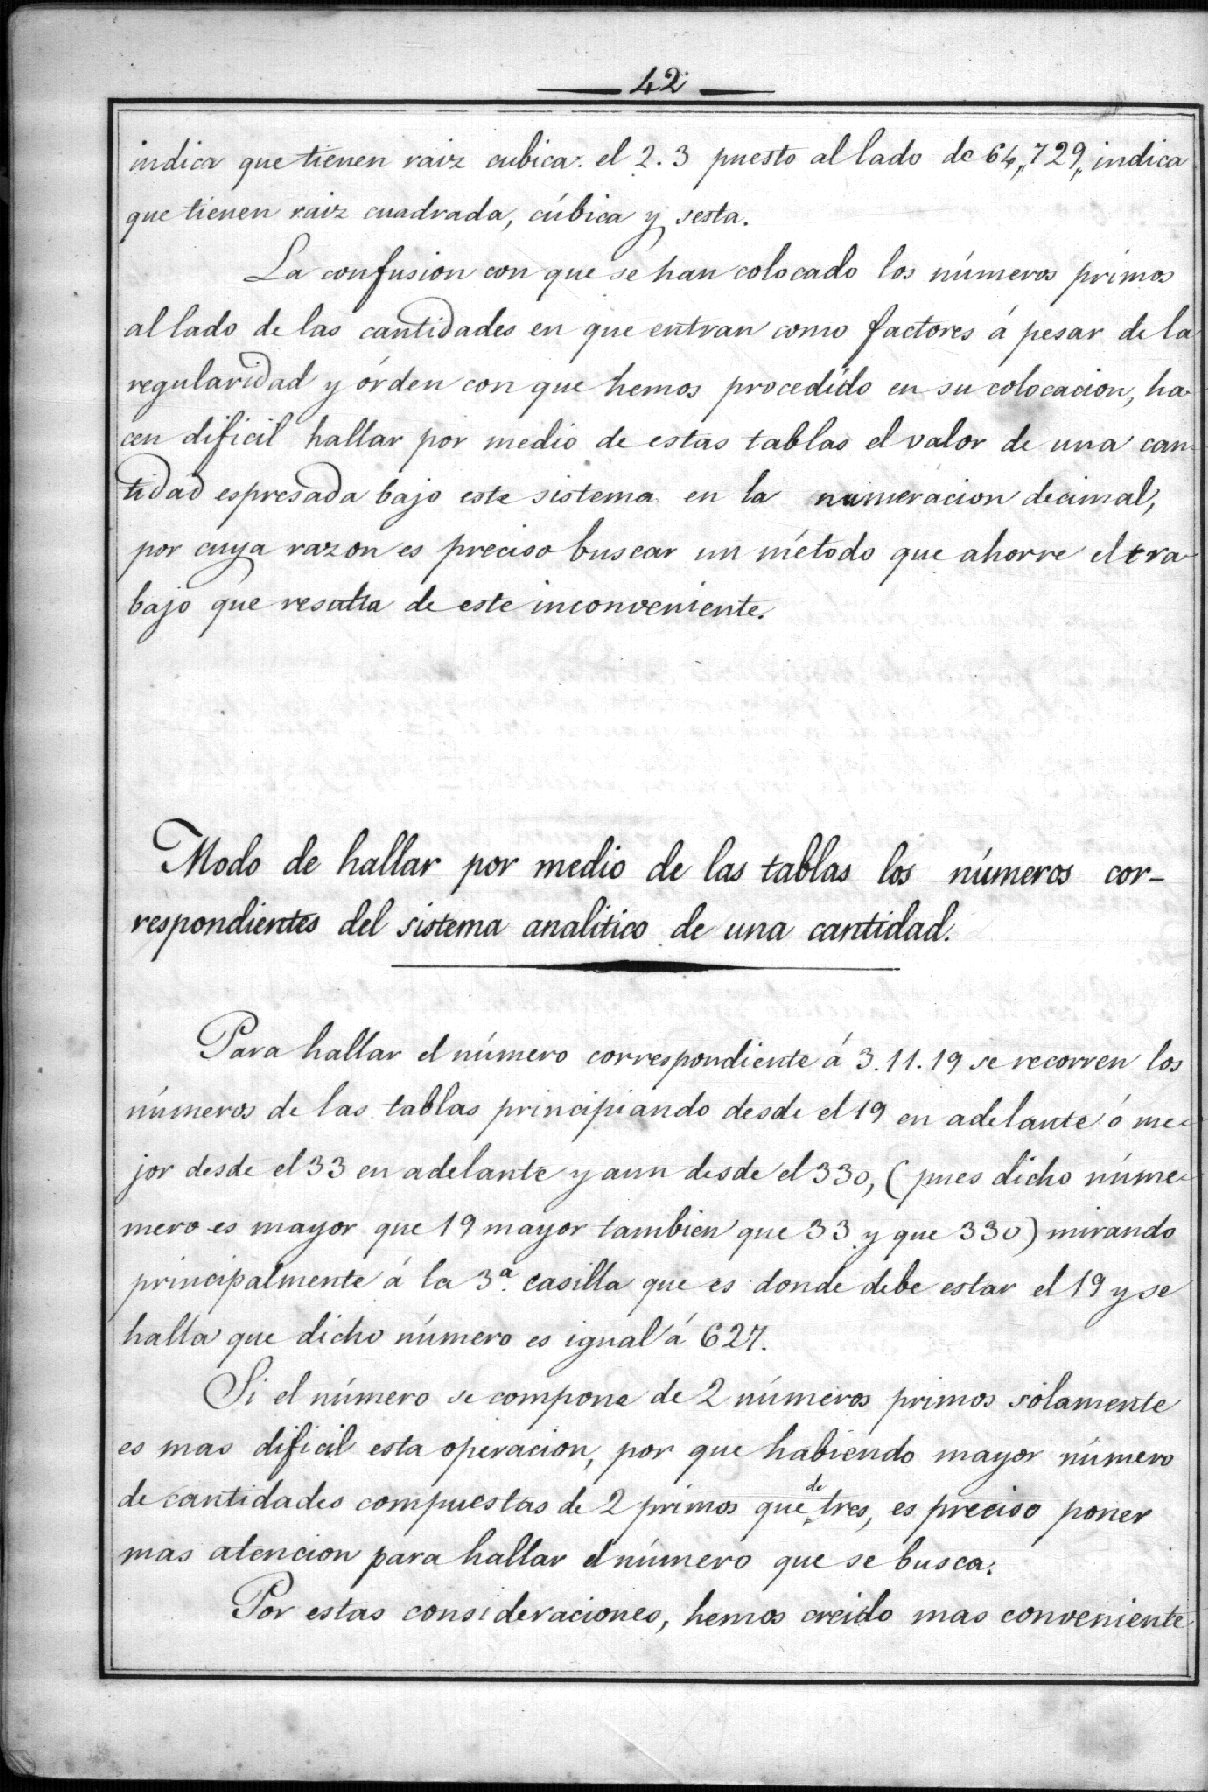 42
indica que tienen raiz cubica. el 2.3 puesto al lado de 64,,729,, indica
que tienen raiz cuadrada, cúbica y sesta.
La confusion con que se han colocado los números primos
al lado de las cantidades en que entran como factores á pesar de la
regularidad y órden con que hemos procedido en su colocacion, ha-
cen dificil hallar por medio de estas tablas el valor de una can-
tidad espresada bajo este sistema en la numeracion decimal,
por cuya razon es preciso buscar un método que ahorre el tra-
bajo que resulta de este inconveniente.
Modo de hallar por medio de las tablas los números cor-
respondientes del sistema analitico de una cantidad.
Para hallar el número correspondiente á 3.11.19 se recorren los
números de las tablas principiando desde el 19 en adelante ó me-
jor desde el 33 en adelante y aun desde el 330, (pues dicho núme-
mero es mayor que 19 mayor tambien que 33 y que 330) mirando
principalmente á la 3ª casilla que es donde debe estar el 19 y se
halla que dicho número es igual á 627.
Si el número se compone de 2 números primos solamente
es mas dificil esta operacion, por que habiendo mayor número
de cantidades compuestas de 2 primos que de tres, es preciso poner
mas atencion para hallar el número que se busca.
Por estas consideraciones, hemos creido mas conveniente